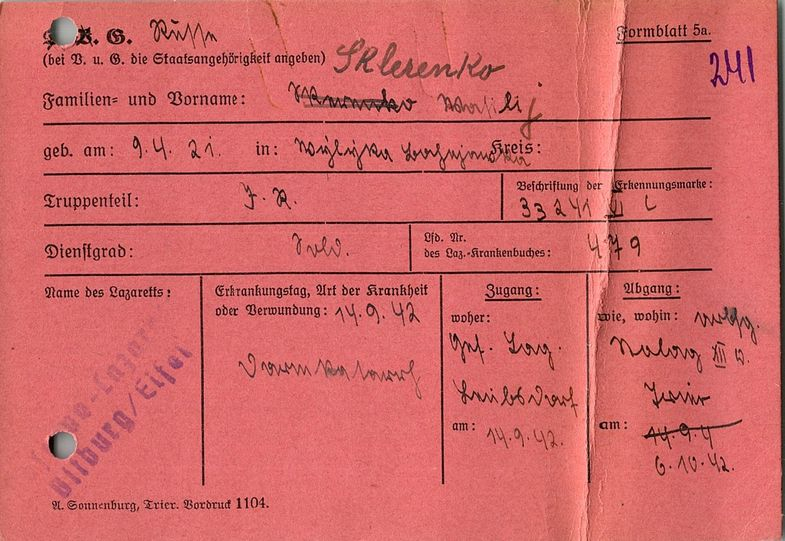 K. G. Russe
Formblatt 5a.
(bei V. u. G. die Staatsangehörigkeit angeben)
Sklerenko
241
Familien- und Vorname: Wasilij
geb. am: 9. 4. 21. in: Kreis:
Truppenteil: J. R.
Beschriftung der Erkennungsmarke:
33241 VI C
Dienstgrad: Sold.
Lfd. Nr.
des Laz.-Krankenbuches: 479
Name des Lazaretts:
Reserve-Lazarett
Bitburg/Eifel
Erkrankungstag, Art der Krankheit
oder Verwundung: 14.9.42
Darmkatarrh
Zugang:
woher:
Gef. Lag.
Leubsdorf
am: 14.9.42.
Abgang:
wie, wohin:
Stalag XII D.
Trier
am: 14.9.4
6.10.42.
A. Sonnenburg, Trier. Vordruck 1104.